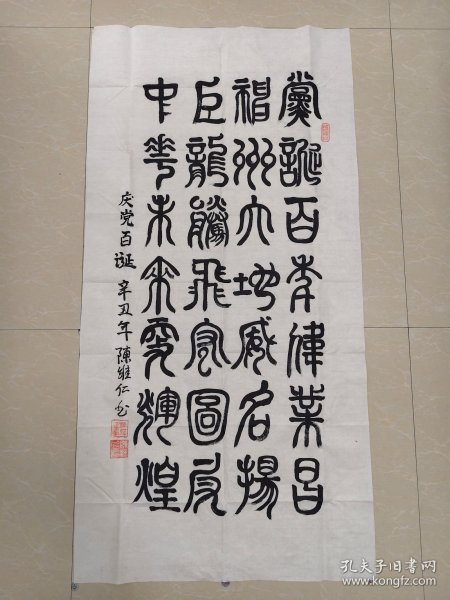 黨誕百年偉業昌
神州大地威名揚
巨龍騰飛宏圖展
中華未來更輝煌
庆党百诞 辛丑年 陳維仁书
孔夫子旧书网
www.kongfz.com